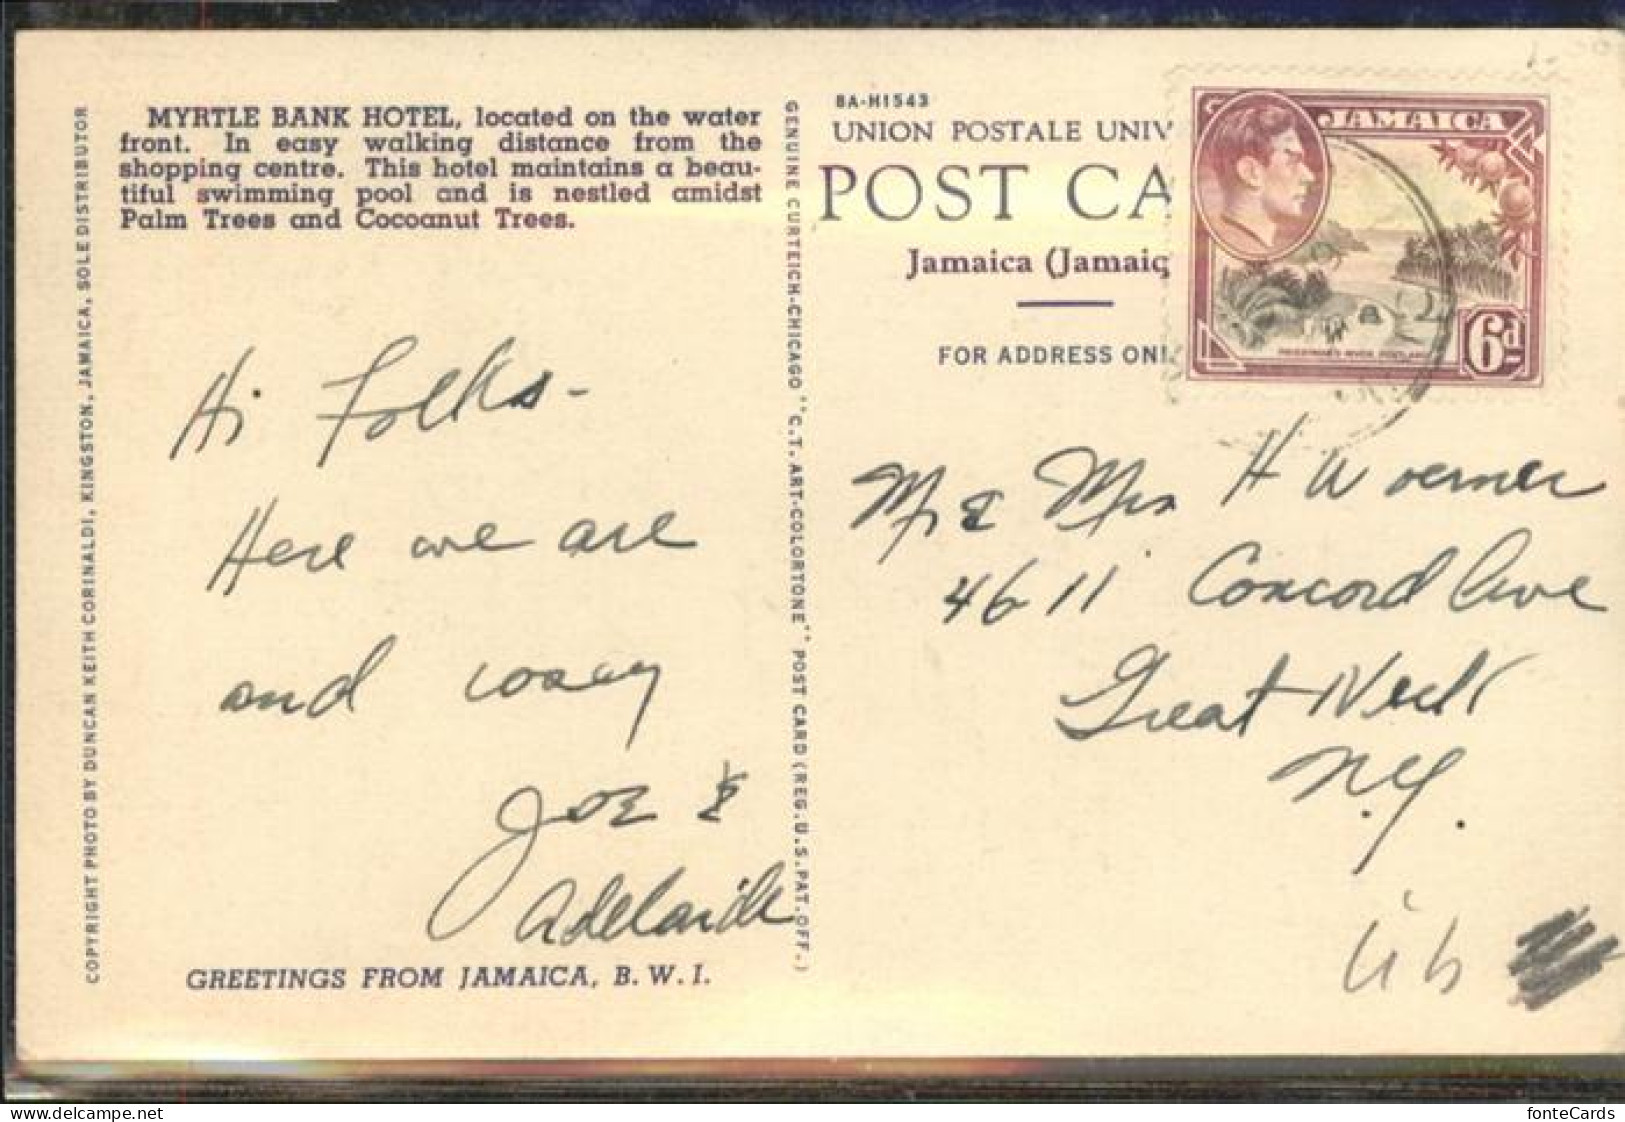 MYRTLE BANK HOTEL, located on the water
front. In easy walking distance from the
shopping centre. This hotel maintains a beau-
tiful swimming pool and is nestled amidst
Palm Trees and Cocoanut Trees.
Hi Folks-
Here we are
and
Joe &
Adelaide
GREETINGS FROM JAMAICA, B. W. I.
COPYRIGHT PHOTO BY DUNCAN KEITH CORINALDI, KINGSTON, JAMAICA, SOLE DISTRIBUTOR
GENUINE CURTEICH-CHICAGO "C.T. ART-COLORTONE" POST CARD (REG. U.S. PAT. OFF.)
8A-H1543
UNION POSTALE UNIV
POST CA
Jamaica (Jamaiq
FOR ADDRESS ONL
JAMAICA
6d
Mr & Mrs H Woerner
4611 Concord Ave
Great Neck
N.Y.
fonteCards